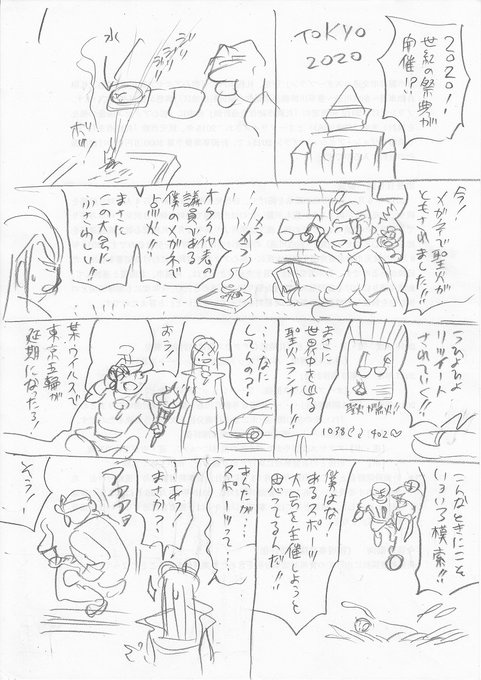 1
2020！
世紀の祭典が
開催！？
TOKYO
2020
水
ジリ
ジリ
ボッ
今！
メガネで聖火が
ともされました!!
メラ
メラ
オタク代表の
議員である
僕のメガネで
点火!!
まさに
この大会に
ふさわしい!!
リツイート
されていく!!
聖火が点火!!
1038
402♡
まさに
世界中を巡る
聖火ランナー!!
……なに
してんの？
おう！
某ウイルスで
東京五輪が
延期になったろう！
こんなときにこそ
いろいろ模索!!
僕はな！
あるスポーツ
大会を主催しようと
思ってるんだ!!
あんたが…
スポーツって…
…あっ！
まさか？
そう！